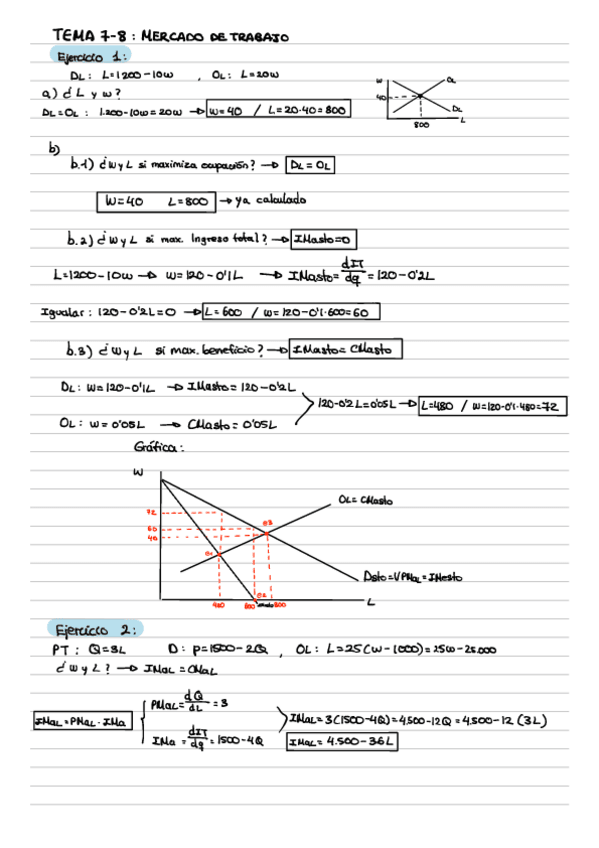 TEMA 7-8: MERCADO DE TRABAJO
Ejercicio 1:
DL: L=1200-10w , OL: L=20w
a) ¿L y w?
DL=OL: 1.200-10w=20w → w=40 / L=20·40=800
w
OL
40
DL
800
L
b)
b.1) ¿w y L si maximiza ocupación? → DL=OL
W=40 L=800 → ya calculado
b.2) ¿w y L si max. Ingreso total? → IMasto=0
L=1200-10w → w=120-0'1L → IMasto= dIT/dq = 120-0'2L
Igualar: 120-0'2L=0 → L=600 / w=120-0'1·600=60
b.3) ¿w y L si max. beneficio? → IMasto=CMasto
DL: w=120-0'1L → IMasto=120-0'2L
120-0'2L=0'05L → L=480 / w=120-0'1·480=72
OL: w=0'05L → CMasto=0'05L
Gráfica:
W
OL=CMasto
72
60
40
e3
e1
e2
Dsto=VPMaL=IMesto
480 600 800
L
Ejercicio 2:
PT: Q=3L D: p=1500-2Q , OL: L=25(w-1000)=25w-25.000
¿w y L? → IMaL=CMaL
PMaL= dQ/dL =3
IMaL=PMaL·IMa
IMaL=3(1500-4Q)=4.500-12Q=4.500-12(3L)
IMa = dIT/dq =1500-4Q
IMaL=4.500-36L